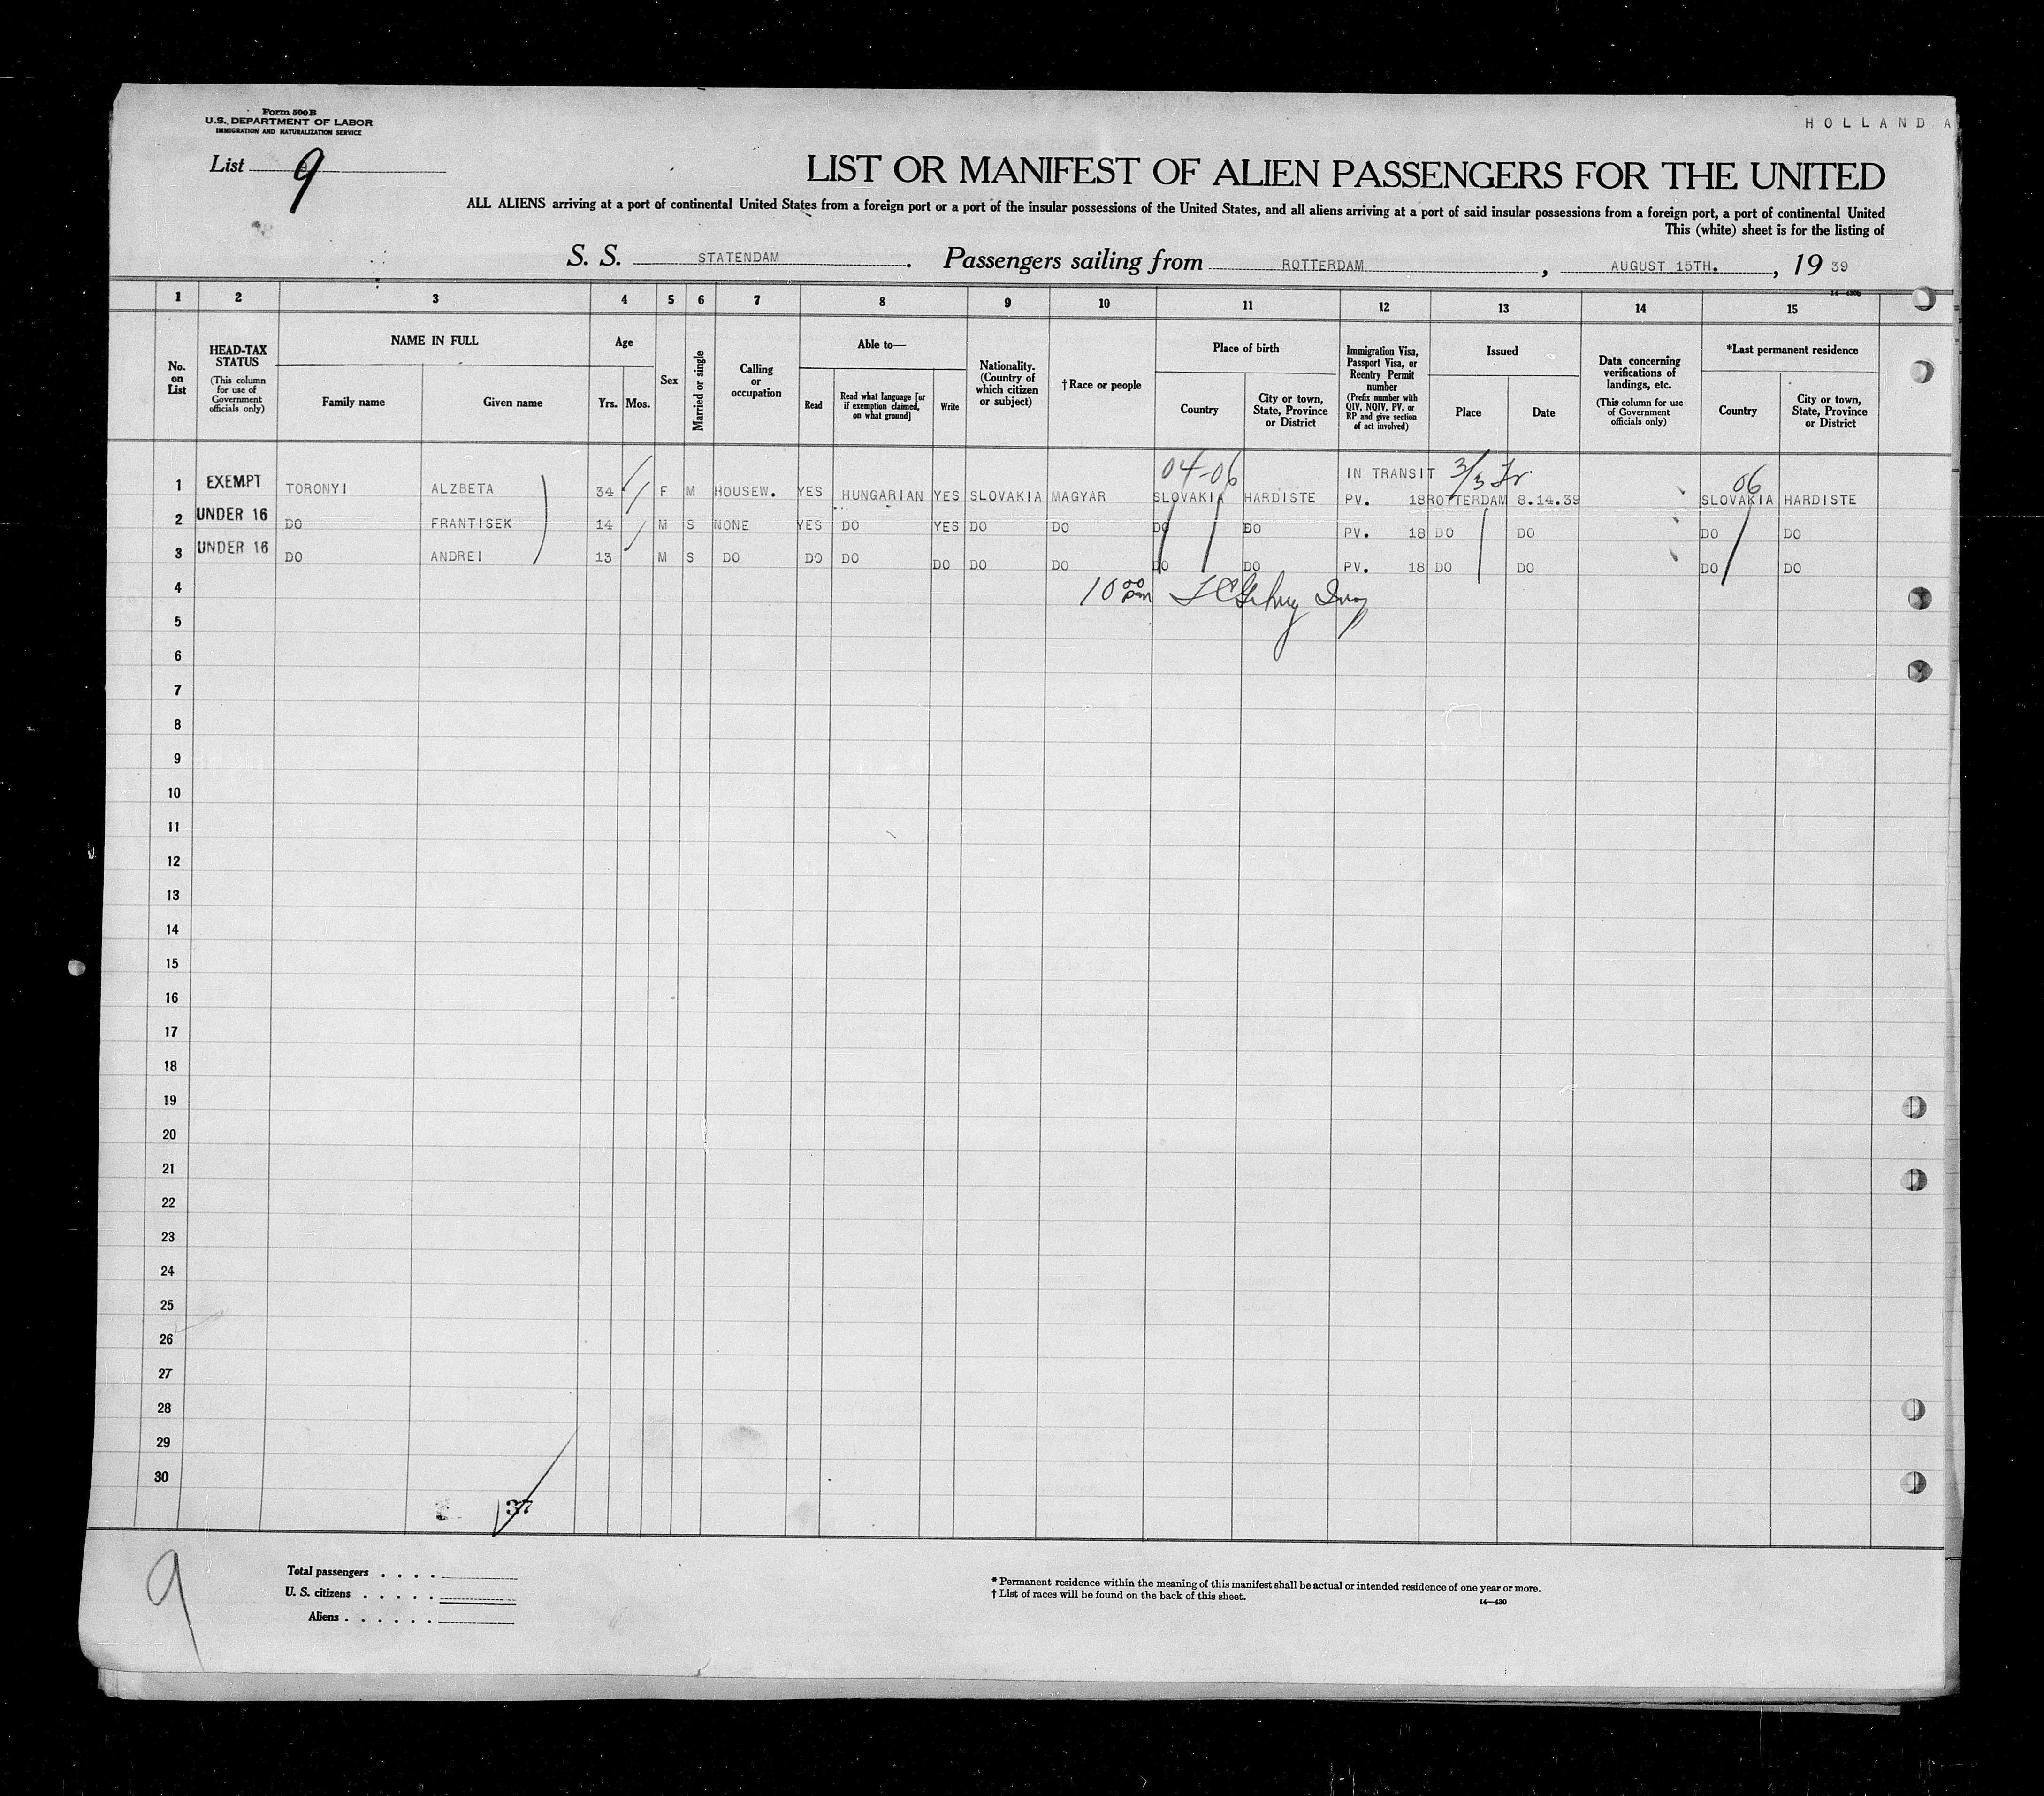 Form 500 B
U.S. DEPARTMENT OF LABOR
IMMIGRATION AND NATURALIZATION SERVICE
HOLLAND A
List 9
LIST OR MANIFEST OF ALIEN PASSENGERS FOR THE UNITED
ALL ALIENS arriving at a port of continental United States from a foreign port or a port of the insular possessions of the United States, and all aliens arriving at a port of said insular possessions from a foreign port, a port of continental United
This (white) sheet is for the listing of
S. S. STATENDAM. Passengers sailing from ROTTERDAM, AUGUST 15TH., 19 39
1 2 3 4 5 6 7 8 9 10 11 12 13 14 15
No. on List
HEAD-TAX STATUS
(This column for use of Government officials only)
NAME IN FULL
Family name
Given name
Age
Yrs. Mos.
Sex
Married or single
Calling or occupation
Able to—
Read
Read what language [or if exemption claimed, on what ground]
Write
Nationality. (Country of which citizen or subject)
†Race or people
Place of birth
Country
City or town, State, Province or District
Immigration Visa, Passport Visa, or Reentry Permit number
(Prefix number with QIV, NQIV, PV, or RP and give section of act involved)
Issued
Place
Date
Data concerning verifications of landings, etc.
(This column for use of Government officials only)
*Last permanent residence
Country
City or town, State, Province or District
04-06 IN TRANSIT 3/3 06
1 EXEMPT TORONYI ALZBETA 34 F M HOUSEW. YES HUNGARIAN YES SLOVAKIA MAGYAR SLOVAKIA HARDISTE PV. 18 ROTTERDAM 8.14.39 SLOVAKIA HARDISTE
2 UNDER 16 DO FRANTISEK 14 M S NONE YES DO YES DO DO DO DO PV. 18 DO DO DO DO
3 UNDER 16 DO ANDREI 13 M S DO DO DO DO DO DO DO DO PV. 18 DO DO DO DO
4 10 00 pm
5
6
7
8
9
10
11
12
13
14
15
16
17
18
19
20
21
22
23
24
25
26
27
28
29
30
37
9
Total passengers . . . .
U. S. citizens . . . . .
Aliens . . . . . .
* Permanent residence within the meaning of this manifest shall be actual or intended residence of one year or more.
† List of races will be found on the back of this sheet.
14—430